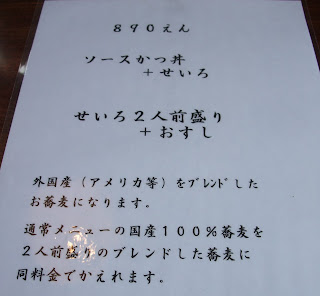 ８９０えん
ソースかつ丼
＋せいろ
せいろ２人前盛り
＋おすし
外国産（アメリカ等）をﾌﾞﾚﾝﾄﾞした
お蕎麦になります。
通常メニューの国産１００％蕎麦を
２人前盛りのブレンドした蕎麦に
同料金でかえれます。